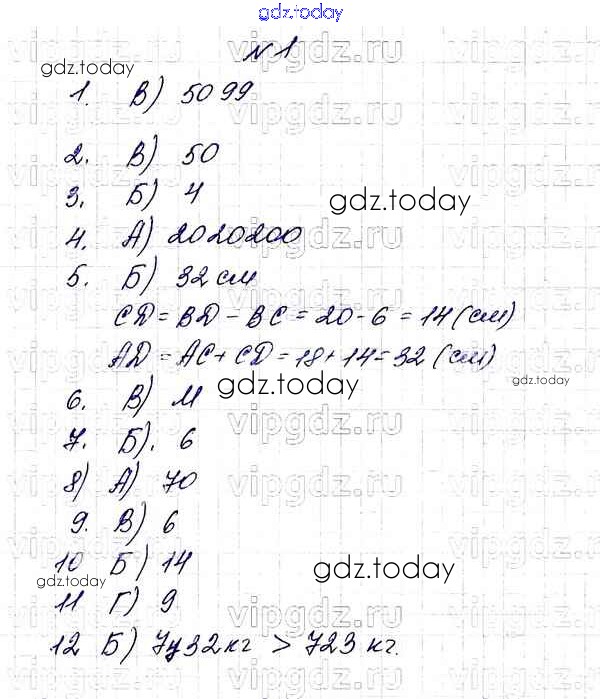 gdz.today
№ 1
gdz.today
1. В) 5099
vipgdz.ru
2. В) 50
3. Б) 4
gdz.today
4. А) 2020200
5. Б) 32 см
CD = BD - BC = 20 - 6 = 14 (см)
AD = AC + CD = 18 + 14 = 32 (см)
gdz.today
gdz.today
6. В) М
7. Б). 6
8) А) 70
9. В) 6
10 Б) 14
gdz.today
gdz.today
11 Г) 9
12 Б) 7ц32кг > 723 кг.